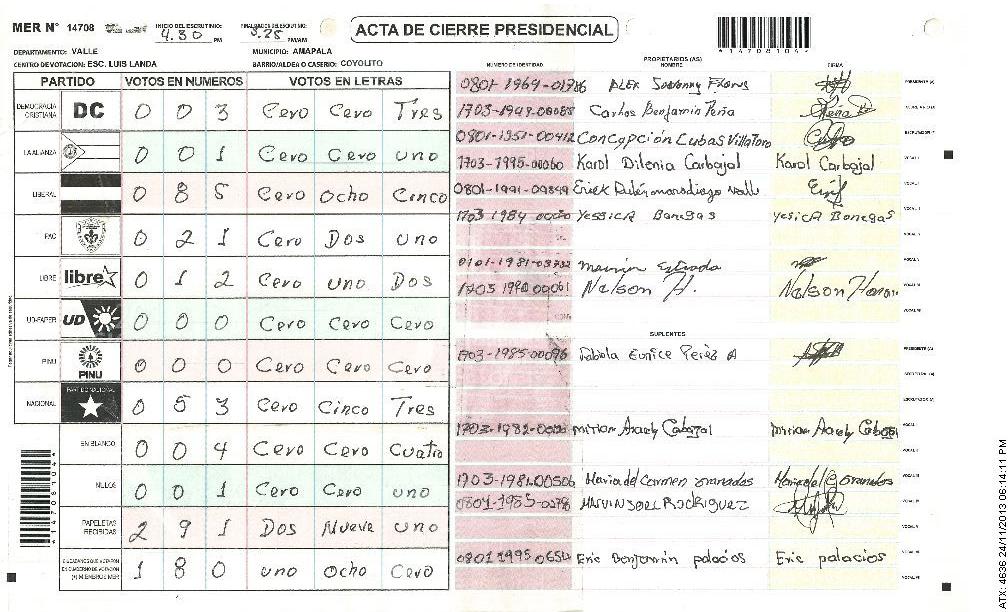 MER N° 14708 INICIO DEL ESCRUTINIO: 4.30 PM FINALIZACION DEL ESCRUTINIO: PM/AM
ACTA DE CIERRE PRESIDENCIAL
DEPARTAMENTO: VALLE MUNICIPIO: AMAPALA
CENTRO DE VOTACION: ESC. LUIS LANDA BARRIO/ALDEA O CASERIO: COYOLITO
PARTIDO VOTOS EN NUMEROS VOTOS EN LETRAS
DEMOCRACIA CRISTIANA DC 0 0 3 Cero Cero Tres
LA ALIANZA 0 0 1 Cero Cero uno
LIBERAL 0 8 5 Cero Ocho Cinco
PAC 0 2 1 Cero Dos uno
LIBRE libre 0 1 2 Cero uno Dos
UD-FAPER UD 0 0 0 Cero Cero Cero
PINU PINU 0 0 0 Cero Cero Cero
NACIONAL PARTIDO NACIONAL 0 5 3 Cero Cinco Tres
EN BLANCO 0 0 4 Cero Cero Cuatro
NULOS 0 0 1 Cero Cero uno
PAPELETAS RECIBIDAS 2 9 1 Dos Nueve uno
CIUDADANOS QUE VOTARON EN CUADERNO DE VOTACION (+) MIEMBROS MER 1 8 0 uno Ocho Cero
PROPIETARIOS (AS)
NUMERO DE IDENTIDAD NOMBRE FIRMA
0801-1964-01786 Flores PRESIDENTE (A)
1703-1949-00088 Carlos Benjamin Peña
0801-1951-00412 Concepción Cubas Villatoro
1703-1995-00060 Karol Dilenia Carbajal Karol Carbajal
0801-1991-09849 Erick
1703 1984 Yessica Banegas Yesica Banegas
0101-1981-03732 Estrada
1703 1990 00061 Nelson H. Nelson
SUPLENTES
1703-1985-00096 Fabiola Eunice Perez A PRESIDENTE (A)
1703-1982- Miriam Aracely Carbajal Miriam Aracely
1703-1981-00506 Maria del Carmen Granados Maria del C Granados
0801-1985- Marvin Joel Rodriguez
0801 1995 Eric Benjamin palacios Eric palacios
14708104
ATX: 4636 24/11/2013 06:14:11 PM